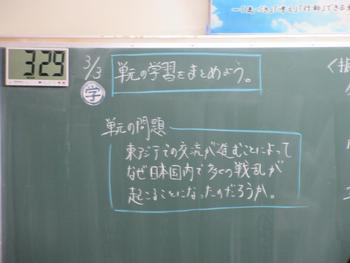 3:29
3/3
単元の学習をまとめよう。
学
単元の問題
東アジアでの交流が進むことによって
なぜ日本国内で多くの戦乱が
起こることになったのだろうか。